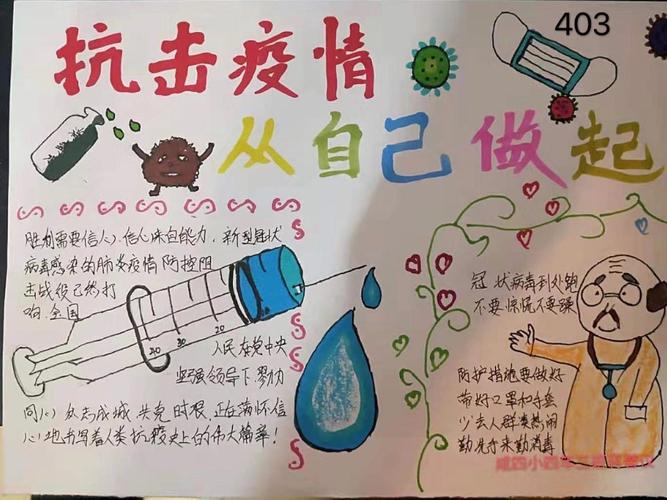 403
抗击疫情
从自己做起
胜利需要信心,信心来自能力,新型冠状
病毒感染的肺炎疫情防控阻
击战役已然打
响,全国
人民在党中央
坚强领导下,勠力
同心,众志成城,共克时艰,正在满怀信
心地书写着人类抗疫史上的伟大篇章!
30 20
冠状病毒到处跑
不要惊慌不要躁
防护措施要做好
带好口罩和手套
少去人群凑热闹
勤洗手来勤消毒